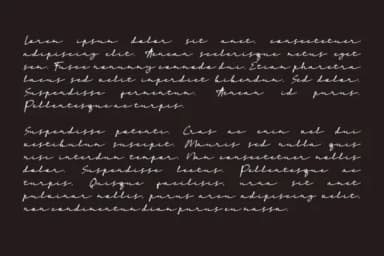 Lorem ipsum dolor sit amet, consectetuer
adipiscing elit. Aenean scelerisque metus eget
sem. Fusce nonummy commodo dui. Etiam pharetra
lacus sed velit imperdiet bibendum. Sed dolor.
Suspendisse fermentum. Aenean id purus.
Pellentesque ac turpis.
Suspendisse potenti. Cras ac enim vel dui
vestibulum suscipit. Mauris sed nulla quis
nisi interdum tempor. Nam consectetuer mollis
dolor. Suspendisse lectus. Pellentesque ac
turpis. Quisque facilisis, urna sit amet
pulvinar mollis, purus arcu adipiscing velit,
non condimentum diam purus eu massa.